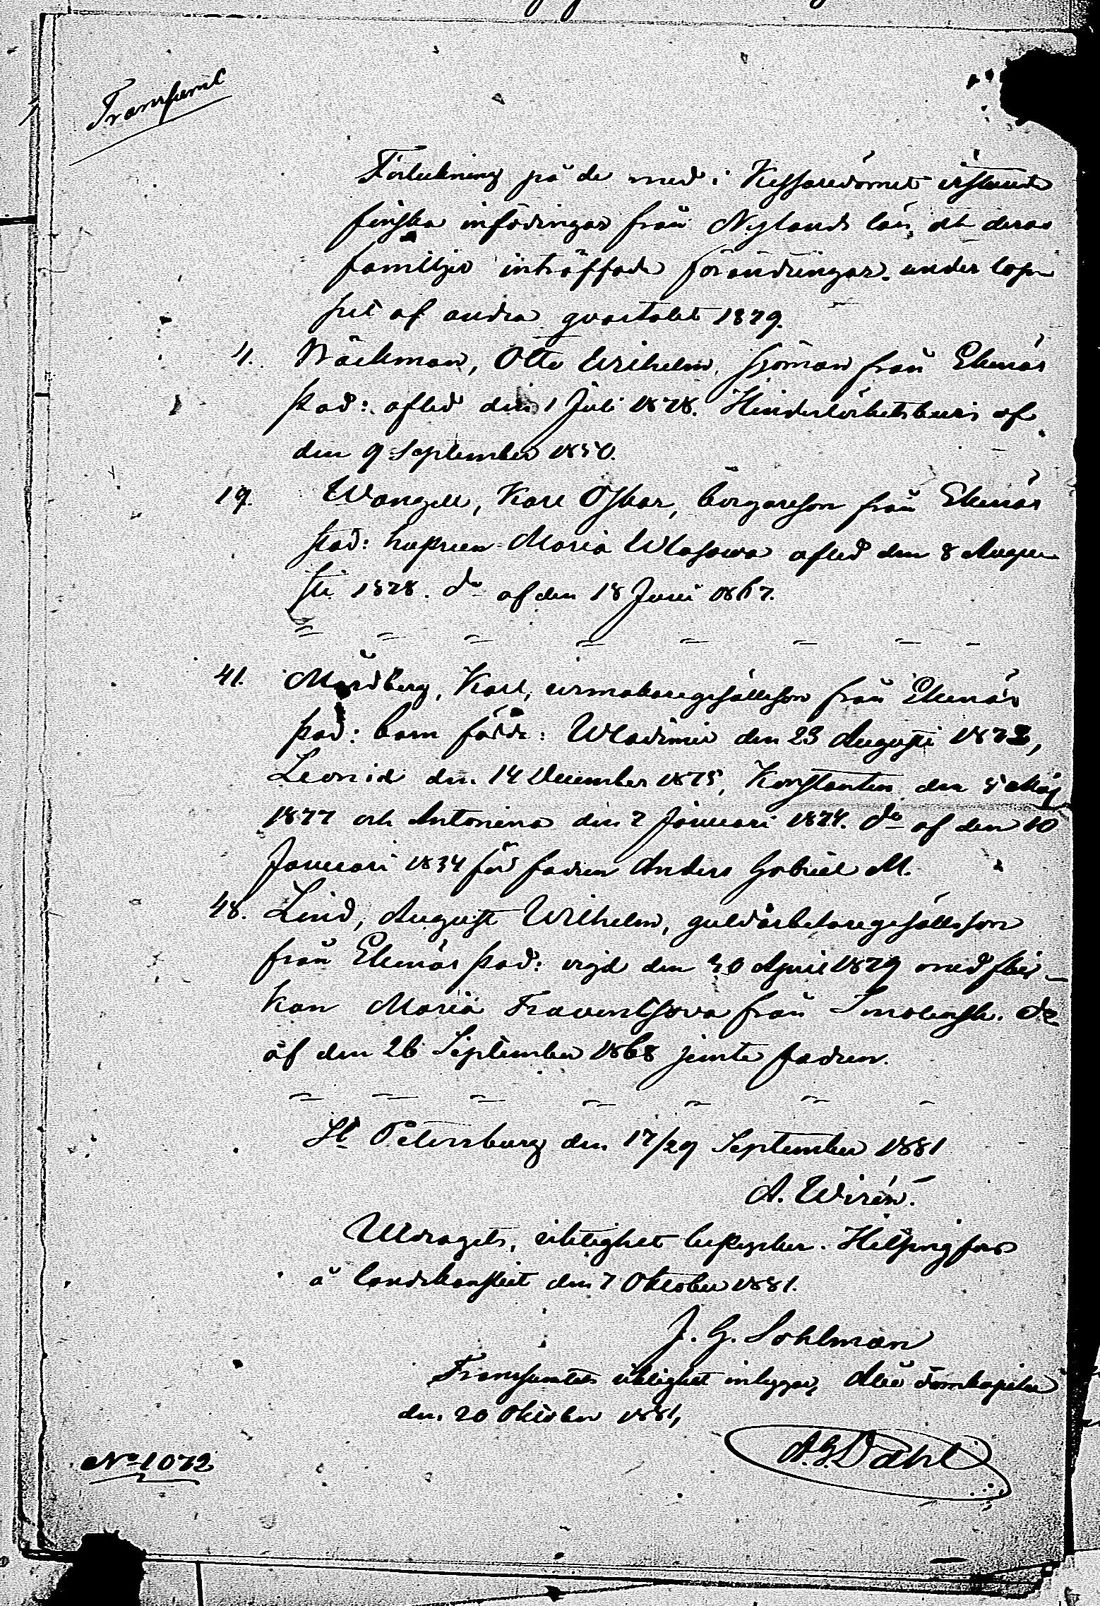 Transsumt
Förteckning på de med i Kejsaredömet
finska infödingar från Nylands län och deras
familjer inträffade förändringar under lop-
pet af andra qvartalet 1879.
4. Wäckman, Otto Wilhelm, sjöman från Ekenäs
stad: afled den 1 Juli 1878. Hinderlöshetsbevis af
den 9 September 1850.
19. Wangell, Karl Oskar, borgareson från Ekenäs
stad: hustrun Maria Wlasowa afled den 8 Augu-
sti 1878. do af den 18 Juni 1867.
41. Mårdberg, Karl, urmakaregesällsson från Ekenäs
stad: barn född: Wladimir den 23 Augusti 1873,
Leonid den 14 December 1875, Konstantin den 5 Maj
1877 och Antonina den 7 Januari 1874. do af den 10
Januari 1834 för fadren Anders Gabriel M.
48. Lind, August Wilhelm, guldarbetaregesällsson
från Ekenäs stad: vigd den 30 April 1879 med flic-
kan Maria från Smolensk. do
af den 26 September 1868 jemte fadren.
St Petersburg den 17/29 September 1881
A. Wirén.
Utdragets riktighet bestyrker. Helsingfors
å landskansliet den 7 Oktober 1881.
J. G. Sohlman
Transumtets riktighet intygar, Åbo Domkapitel
den 20 Oktober 1881,
A. G. Dahl
No 1072